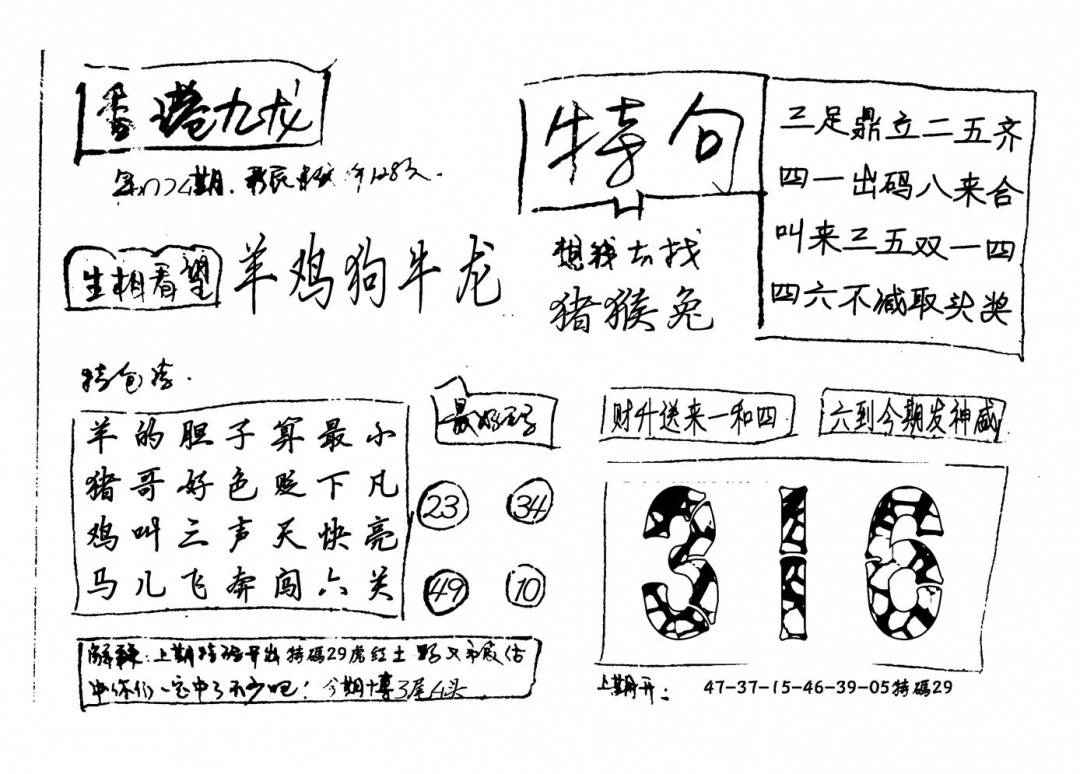 香港九龙
特句
三足鼎立二五齐
四一出码八来合
叫来三五双一四
四六不减取头奖
生相看望
羊鸡狗牛龙
想钱去找
猪猴兔
羊的胆子算最小
猪哥好色贬下凡
鸡叫三声天快亮
马儿飞奔闯六关
23 34
49 10
财升送来一和四
六到今期发神威
316
上期特码开出特碼29虎红土
你们一定中了不少吧!今期博3尾4头
上期开:47-37-15-46-39-05特碼29